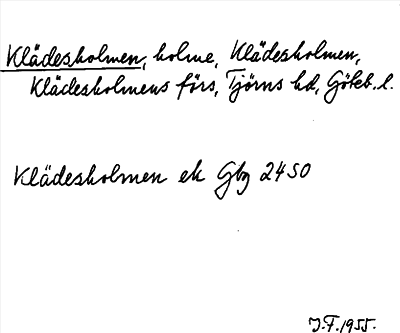 Klädesholmen, holme, Klädesholmen,
Klädesholmens förs, Tjörns hd, Göteb. l.
Klädesholmen ek Gbg 2450
J.F. 1955.